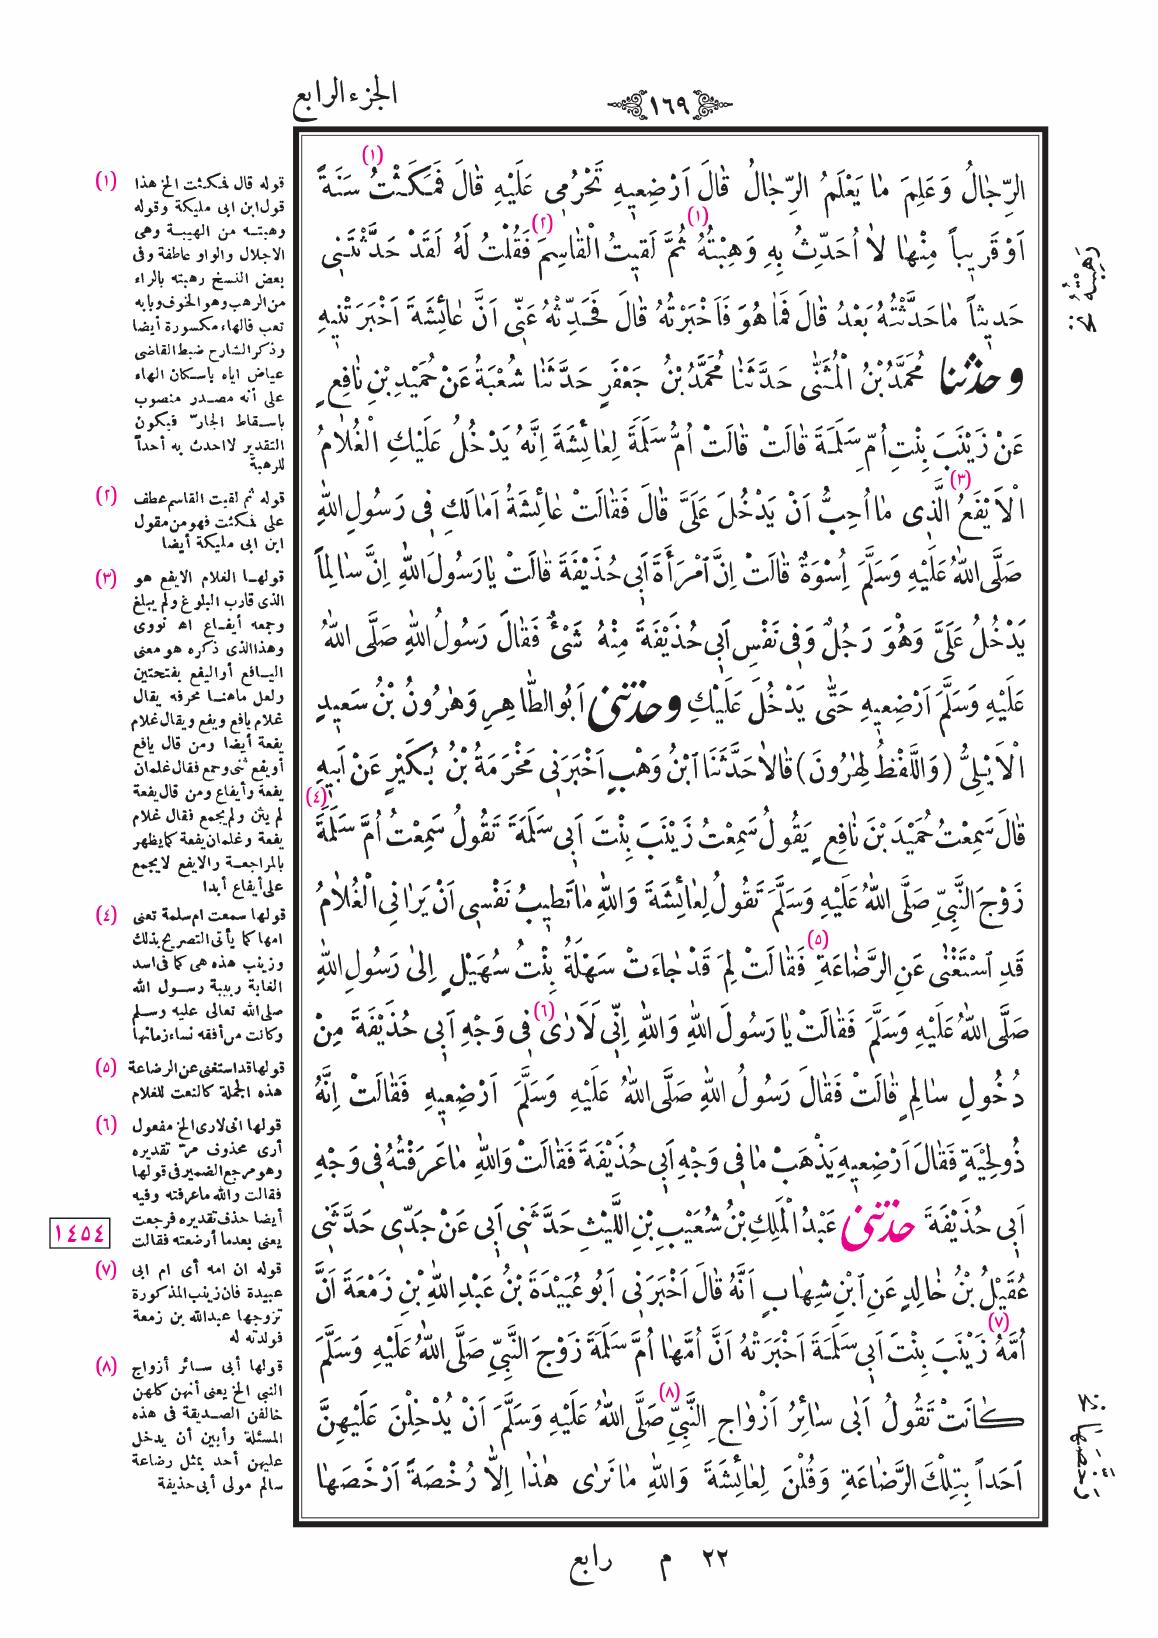 الجزء الرابع
١٦٩
الرِّجَالُ وَعَلِمَ مَا يَعْلَمُ الرِّجَالُ قَالَ اَرْضِعِيهِ تَحْرُمِي عَلَيْهِ قَالَ فَمَكَثْتُ (١) سَنَةً
اَوْ قَرِيباً مِنْهَا لَا اُحَدِّثُ بِهِ وَهِبْتُهُ (١) ثُمَّ لَقِيتُ الْقَاسِمَ (٢) فَقُلْتُ لَهُ لَقَدْ حَدَّثْتَنِي
حَدِيثاً مَا حَدَّثْتُهُ بَعْدُ قَالَ فَمَا هُوَ فَاَخْبَرْتُهُ قَالَ فَحَدِّثْهُ عَنِّي اَنَّ عَائِشَةَ اَخْبَرَتْنِيهِ
وحدثنا مُحَمَّدُ بْنُ الْمُثَنَّى حَدَّثَنَا مُحَمَّدُ بْنُ جَعْفَرٍ حَدَّثَنَا شُعْبَةُ عَنْ حُمَيْدِ بْنِ نَافِعٍ
عَنْ زَيْنَبَ بِنْتِ اُمِّ سَلَمَةَ قَالَتْ قَالَتْ اُمُّ سَلَمَةَ لِعَائِشَةَ اِنَّهُ يَدْخُلُ عَلَيْكِ الْغُلَامُ
الْاَيْفَعُ (٣) الَّذِي مَا اُحِبُّ اَنْ يَدْخُلَ عَلَيَّ قَالَ فَقَالَتْ عَائِشَةُ اَمَا لَكِ فِي رَسُولِ اللّٰهِ
صَلَّى اللّٰهُ عَلَيْهِ وَسَلَّمَ اِسْوَةٌ قَالَتْ اِنَّ امْرَأَةَ اَبِي حُذَيْفَةَ قَالَتْ يَا رَسُولَ اللّٰهِ اِنَّ سَالِماً
يَدْخُلُ عَلَيَّ وَهُوَ رَجُلٌ وَفِي نَفْسِ اَبِي حُذَيْفَةَ مِنْهُ شَيْءٌ فَقَالَ رَسُولُ اللّٰهِ صَلَّى اللّٰهُ
عَلَيْهِ وَسَلَّمَ اَرْضِعِيهِ حَتَّى يَدْخُلَ عَلَيْكِ وحدثني اَبُو الطَّاهِرِ وَهٰرُونُ بْنُ سَعِيدٍ
الْاَيْلِيُّ (وَاللَّفْظُ لِهٰرُونَ) قَالَا حَدَّثَنَا ابْنُ وَهْبٍ اَخْبَرَنِي مَخْرَمَةُ بْنُ بُكَيْرٍ عَنْ اَبِيهِ
قَالَ سَمِعْتُ حُمَيْدَ بْنَ نَافِعٍ يَقُولُ سَمِعْتُ زَيْنَبَ بِنْتَ اَبِي سَلَمَةَ تَقُولُ سَمِعْتُ اُمَّ سَلَمَةَ (٤)
زَوْجَ النَّبِيِّ صَلَّى اللّٰهُ عَلَيْهِ وَسَلَّمَ تَقُولُ لِعَائِشَةَ وَاللّٰهِ مَا تَطِيبُ نَفْسِي اَنْ يَرَانِي الْغُلَامُ
قَدِ اسْتَغْنٰى عَنِ الرَّضَاعَةِ (٥) فَقَالَتْ لِمَ قَدْ جَاءَتْ سَهْلَةُ بِنْتُ سُهَيْلٍ اِلٰى رَسُولِ اللّٰهِ
صَلَّى اللّٰهُ عَلَيْهِ وَسَلَّمَ فَقَالَتْ يَا رَسُولَ اللّٰهِ وَاللّٰهِ اِنِّي لَاَرٰى (٦) فِي وَجْهِ اَبِي حُذَيْفَةَ مِنْ
دُخُولِ سَالِمٍ قَالَتْ فَقَالَ رَسُولُ اللّٰهِ صَلَّى اللّٰهُ عَلَيْهِ وَسَلَّمَ اَرْضِعِيهِ فَقَالَتْ اِنَّهُ
ذُو لِحْيَةٍ فَقَالَ اَرْضِعِيهِ يَذْهَبْ مَا فِي وَجْهِ اَبِي حُذَيْفَةَ فَقَالَتْ وَاللّٰهِ مَا عَرَفْتُهُ فِي وَجْهِ
اَبِي حُذَيْفَةَ حدثني عَبْدُ الْمَلِكِ بْنُ شُعَيْبِ بْنِ اللَّيْثِ حَدَّثَنِي اَبِي عَنْ جَدِّي حَدَّثَنِي
عُقَيْلُ بْنُ خَالِدٍ عَنِ ابْنِ شِهَابٍ اَنَّهُ قَالَ اَخْبَرَنِي اَبُو عُبَيْدَةَ بْنُ عَبْدِ اللّٰهِ بْنِ زَمْعَةَ اَنَّ
اُمَّهُ (٧) زَيْنَبَ بِنْتَ اَبِي سَلَمَةَ اَخْبَرَتْهُ اَنَّ اُمَّهَا اُمَّ سَلَمَةَ زَوْجَ النَّبِيِّ صَلَّى اللّٰهُ عَلَيْهِ وَسَلَّمَ
كَانَتْ تَقُولُ اَبٰى سَائِرُ اَزْوَاجِ النَّبِيِّ (٨) صَلَّى اللّٰهُ عَلَيْهِ وَسَلَّمَ اَنْ يُدْخِلْنَ عَلَيْهِنَّ
اَحَداً بِتِلْكَ الرَّضَاعَةِ وَقُلْنَ لِعَائِشَةَ وَاللّٰهِ مَا نَرٰى هٰذَا اِلَّا رُخْصَةً اَرْخَصَهَا
رَهِبْتُهُ نخ
رَخَّصَهَا نخ
(١) قوله قال فمكثت الخ هذا
قول ابن ابى مليكة وقوله
وهبته من الهيبة وهى
الاجلال والواو عاطفة وفى
بعض النسخ رهبته بالراء
من الرهب وهو الخوف وبابه
تعب فالهاء مكسورة أيضا
وذكر الشارح ضبط القاضى
عياض اياه باسكان الهاء
على أنه مصدر منصوب
باسقاط الجارّ فيكون
التقدير لا احدث به أحداً
للرهبة
(٢) قوله ثم لقيت القاسم عطف
على فمكثت فهو من مقول
ابن ابى مليكة أيضا
(٣) قولها الغلام الايفع هو
الذى قارب البلوغ ولم يبلغ
وجمعه أيفاع اه نووى
وهذا الذى ذكره هو معنى
اليافع أو اليفع بفتحتين
ولعل ماهنا محرفه يقال
غلام يافع ويفع ويقال غلام
يفعة أيضا ومن قال يافع
أو يفع ثنى وجمع فقال غلمان
يفعة وأيفاع ومن قال يفعة
لم يثن ولم يجمع فقال غلام
يفعة وغلمان يفعة كما يظهر
بالمراجعة والايفع لا يجمع
على أيفاع أبدا
(٤) قولها سمعت ام سلمة تعنى
امها كما يأتى التصريح بذلك
وزينب هذه هى كما فى اسد
الغابة ربيبة رسول الله
صلى الله تعالى عليه وسلم
وكانت من أفقه نساء زمانها
(٥) قولها قد استغنى عن الرضاعة
هذه الجملة كالنعت للغلام
(٦) قولها انى لارى الخ مفعول
أرى محذوف مرّ تقديره
وهو مرجع الضمير فى قولها
فقالت والله ما عرفته وفيه
أيضا حذف تقديره فرجعت
يعنى بعدما أرضعته فقالت
١٤٥٤
(٧) قوله ان امه أى ام ابى
عبيدة فان زينب المذكورة
تزوجها عبدالله بن زمعة
فولدته له
(٨) قولها أبى سائر أزواج
النبى الخ يعنى أنهن كلهن
خالفن الصديقة فى هذه
المسئلة وأبين أن يدخل
عليهن أحد بمثل رضاعة
سالم مولى أبى حذيفة
٢٢ م رابع